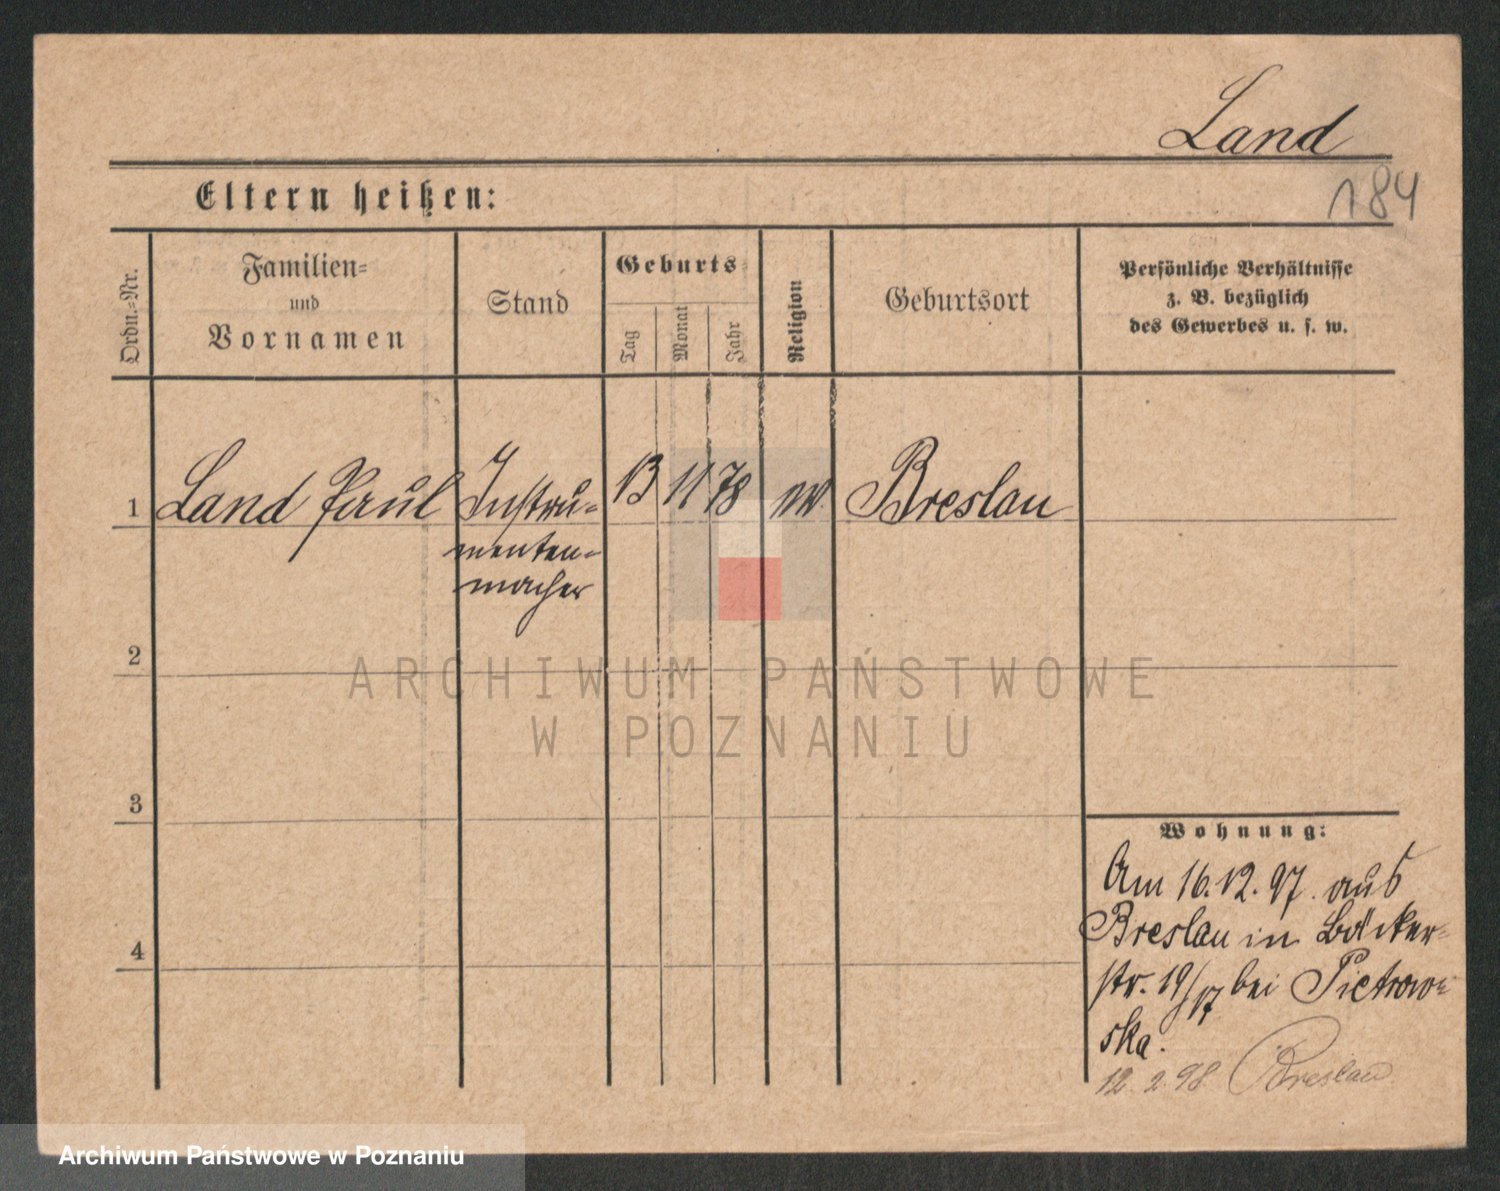 Land
184
Eltern heißen:
Ordn.=Nr.
Familien=
und
Vornamen
Stand
Geburts=
Tag
Monat
Jahr
Religion
Geburtsort
Persönliche Verhältnisse
z. B. bezüglich
des Gewerbes u. s. w.
1 Land Paul Instru- 13 11 78 Breslau
menten-
macher
2
ARCHIWUM PAŃSTWOWE
W POZNANIU
3
Wohnung:
Am 16.12.97. aus
Breslau in Bäcker=
4
str. 19/17 bei Pietrow=
ska.
12. 2. 98 Breslau
Archiwum Państwowe w Poznaniu